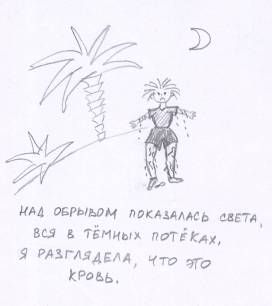 НАД ОБРЫВОМ ПОКАЗАЛАСЬ СВЕТА,
ВСЯ В ТЁМНЫХ ПОТЁКАХ,
Я РАЗГЛЯДЕЛА, ЧТО ЭТО
КРОВЬ.